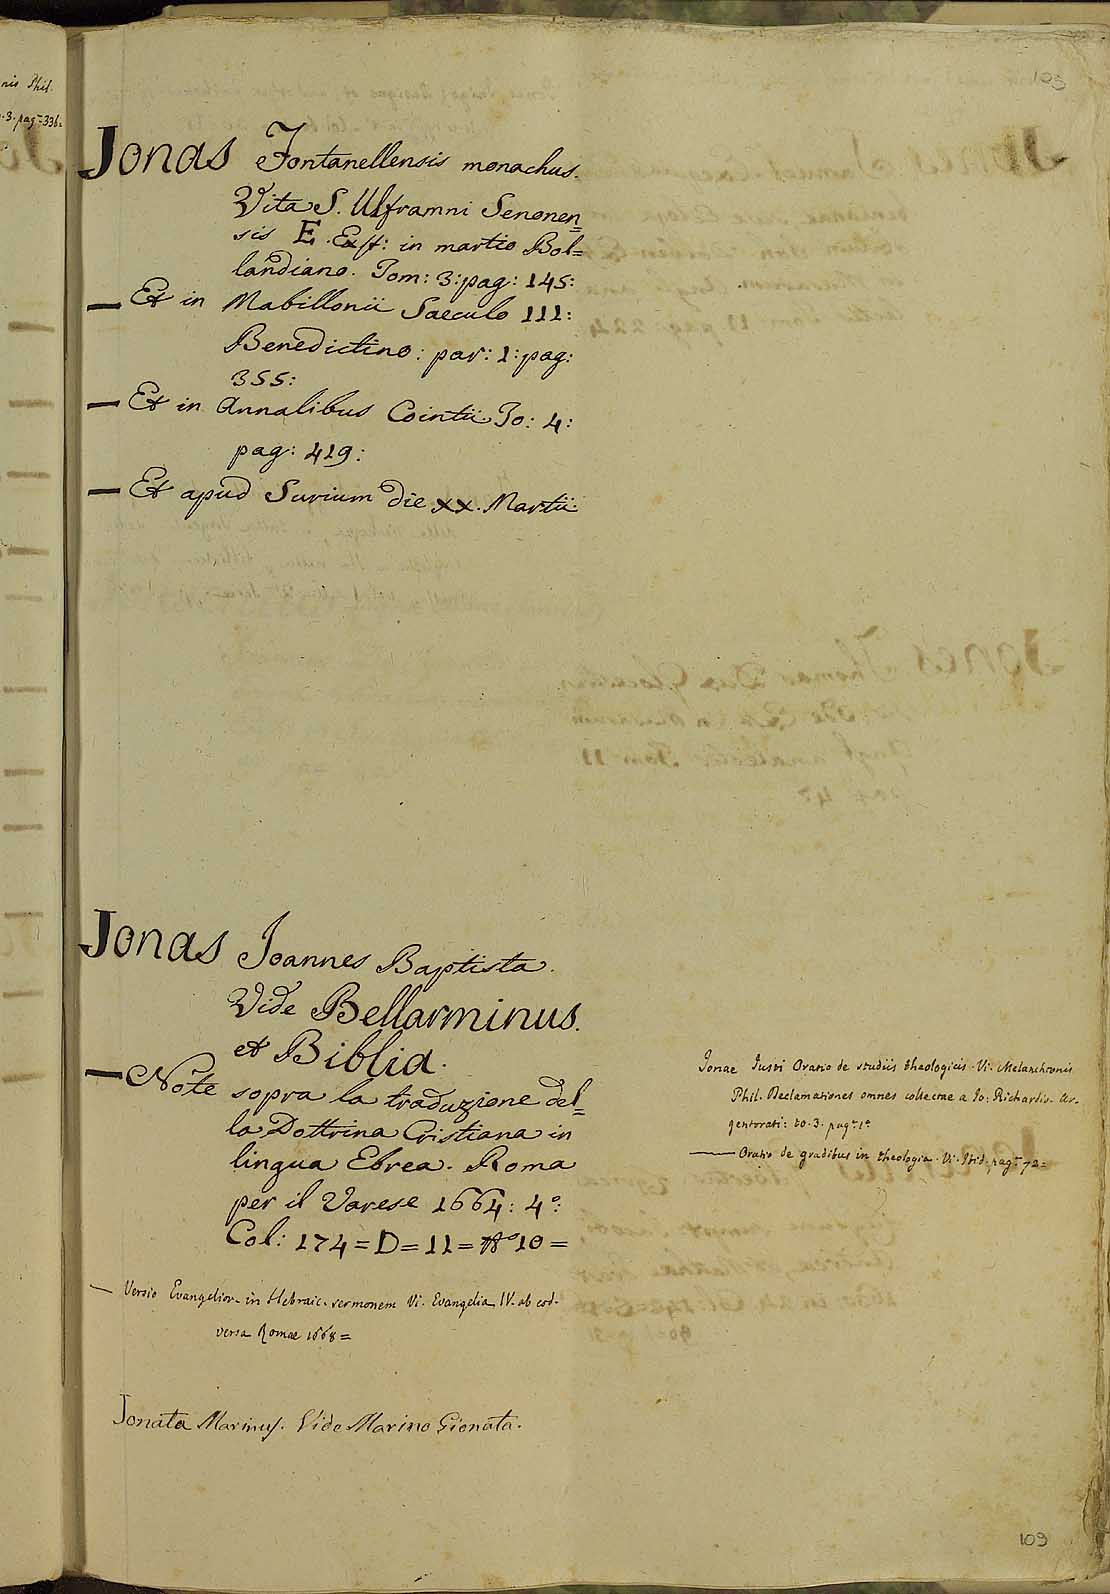 nis Phil.
3. pag. 336=
103
Jonas Fontanellensis monachus.
Vita S. Ulframni Senonen=
sis E. Ext: in martio Bol=
landiano. Tom: 3: pag: 145:
— Et in Mabillonii Saeculo III:
Benedictino: par: 1: pag:
355:
— Et in Annalibus Cointii To: 4:
pag: 419:
— Et apud Surium die XX. Martii
Jonas Joannes Baptista.
Vide Bellarminus.
et Biblia.
— Note sopra la traduzione del=
la Dottrina Cristiana in
lingua Ebrea. Roma
per il Varese 1664: 4°:
Col: 174 = D = 11 = N° 10 =
— Versio Evangelior. in Hebraic. sermonem Vi. Evangelia IV. ab eod.
versa Romae 1668 =
Jonata Marinus. Vide Marino Gionata.
Jonae Justi Oratio de studiis theologicis. Vi. Melanchtonis
Phil. Declamationes omnes collectae a Jo: Richardio. Ar.
gentorati: to. 3. pag. 1ª
— Oratio de gradibus in theologia. Vi. Ibid. pag. 72=
109